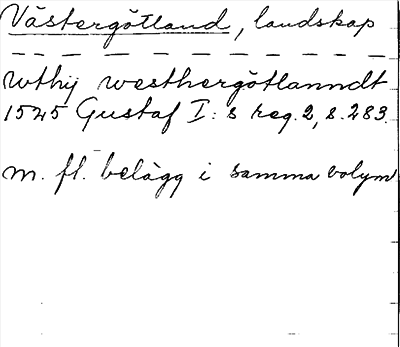 Västergötland, landskap
wthij westhergötlanndt
1525 Gustaf I:s reg. 2, s. 283.
m. fl. belägg i samma volym